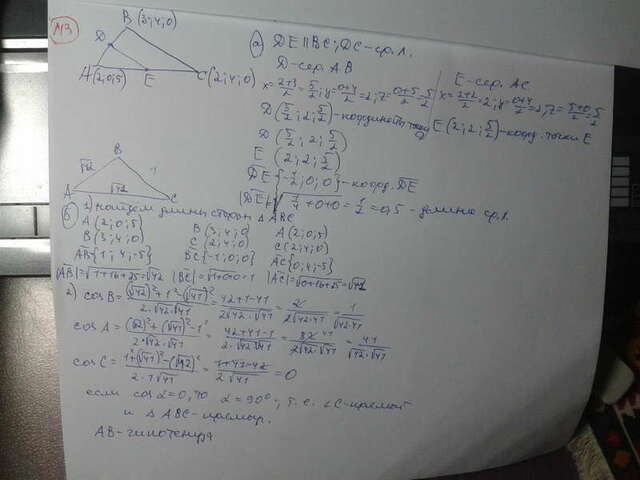 №3
B (3; 4; 0)
D
A (2; 0; 5)
E
C (2; 4; 0)
а) DE || BC; DE - ср. л.
D - сер. AB
x = (2+3)/2 = 5/2; y = (0+4)/2 = 2; z = (0+5)/2 = 5/2
D (5/2; 2; 5/2) - координаты точки D
E - сер. AC
x = (2+2)/2 = 2; y = (0+4)/2 = 2; z = (5+0)/2 = 5/2
E (2; 2; 5/2) - коорд. точки E
D (5/2; 2; 5/2)
E (2; 2; 5/2)
DE {-1/2; 0; 0} - коорд. DE
|DE| = √(1/4 + 0 + 0) = 1/2 = 0,5 - длина ср. л.
B
√42
1
A
√42
C
б) 1) найдем длины сторон △ABC
A (2; 0; 5) B (3; 4; 0) A (2; 0; 5)
B (3; 4; 0) C (2; 4; 0) C (2; 4; 0)
AB {1; 4; -5} BC {-1; 0; 0} AC {0; 4; -5}
|AB| = √(1+16+25) = √42 |BC| = √(1+0+0) = 1 |AC| = √(0+16+25) = √41
2) cos B = ((√42)² + 1² - (√41)²)/(2·√42·√41) = (42+1-41)/(2√42·√41) = 2/(2√42·41) = 1/√(42·41)
cos A = ((√42)² + (√41)² - 1²)/(2·√42·√41) = (42+41-1)/(2·√42·√41) = 82/(2√42·√41) = 41/(√42·√41)
cos C = (1² + (√41)² - (√42)²)/(2·1·√41) = (1+41-42)/(2√41) = 0
если cos α = 0, то α = 90°, т. е. ∠C - прямой
и △ABC - прямоуг.
AB - гипотенуза